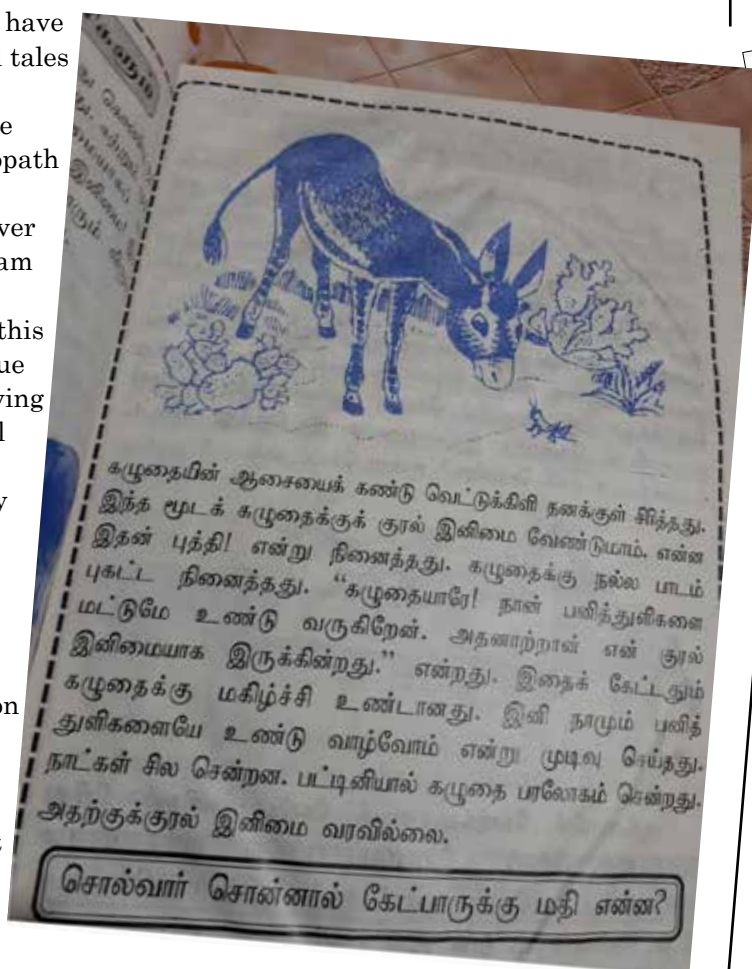 have
tales
path
ver
am
this
ue
ving
on
கழுதையின் ஆசையைக் கண்டு வெட்டுக்கிளி தனக்குள் சிரித்தது.
இந்த மூடக் கழுதைக்குக் குரல் இனிமை வேண்டுமாம். என்ன
இதன் புத்தி! என்று நினைத்தது. கழுதைக்கு நல்ல பாடம்
புகட்ட நினைத்தது. “கழுதையாரே! நான் பனித்துளிகளை
மட்டுமே உண்டு வருகிறேன். அதனாற்றான் என் குரல்
இனிமையாக இருக்கின்றது.” என்றது. இதைக் கேட்டதும்
கழுதைக்கு மகிழ்ச்சி உண்டானது. இனி நாமும் பனித்
துளிகளையே உண்டு வாழ்வோம் என்று முடிவு செய்தது.
நாட்கள் சில சென்றன. பட்டினியால் கழுதை பரலோகம் சென்றது.
அதற்குக்குரல் இனிமை வரவில்லை.
சொல்வார் சொன்னால் கேட்பாருக்கு மதி என்ன?